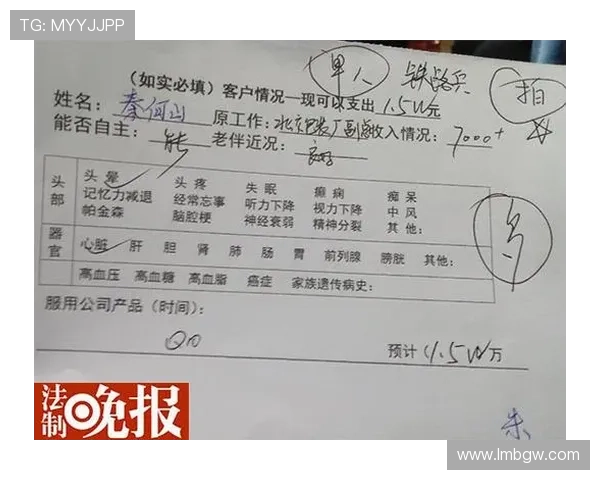 TG: MYYJJPP
单人 铁路兵 拍
（如实必填）客户情况—现可以支出 1.5W元
姓名： 秦何山 原工作： 北京 厂副 收入情况： 7000+
能否自主： 能 老伴近况： 良好
头部
头晕 头疼 失眠 癫痫 痴呆
记忆力减退 经常忘事 听力下降 视力下降 中风
帕金森 脑腔梗 神经衰弱 精神分裂 其他：
器官
心脏 肝 胆 肾 肺 肠 胃 前列腺 膀胱 其他：
高血压 高血糖 高血脂 癌症 家族遗传病史：
服用公司产品（时间）：
预计 1.5W 万
朱
法制晚报
www.lmbgw.com